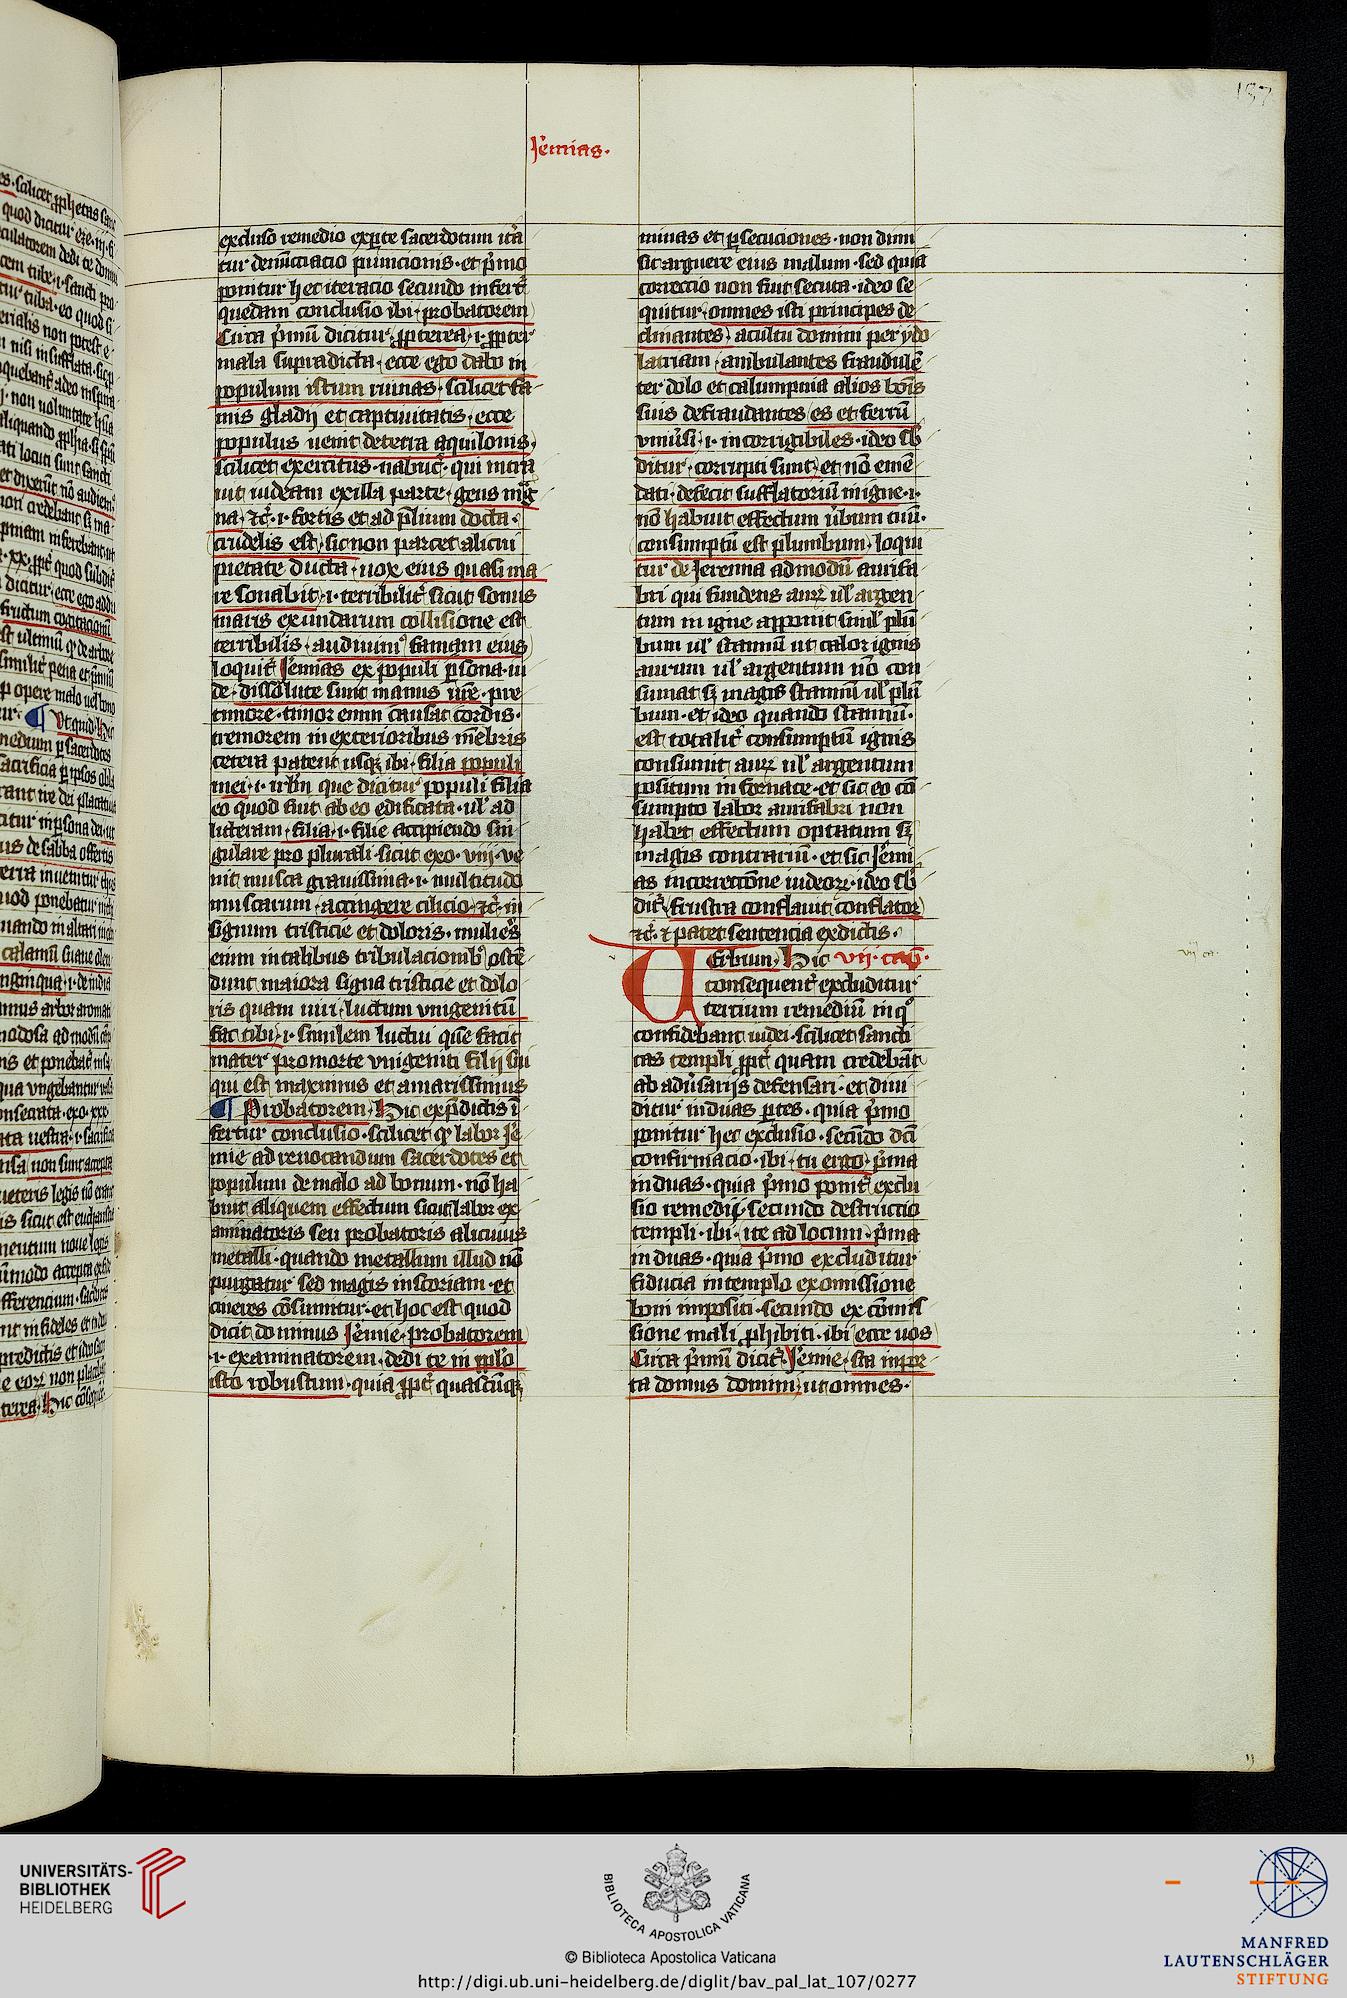 157
Jeremias.
excluso remedio exparte sacerdotum itera
tur denunciacio punicionis · et primo
ponitur hec iteracio secundo infert
quedam conclusio ibi · probatorem
Circa primū dicitur · propterea · i · propter
mala supradicta · ecce ego dabo in
populum istum ruinas · scilicet fa
mis gladij et captiuitatis · ecce
populus uenit de terra aquilonis ·
scilicet exercitus · nabuc · qui intra
uit iudeam ex illa parte · gens mag
na · etc · i · fortis et ad prelium docta ·
crudelis est · sic non parcet alicui
pietate ducta · uox eius quasi ma
re sonabit · i · terribiliter sicut sonus
maris ex undarum collisione est
terribilis · audiuimus famam eius
loquitur Jeremias ex populi persona · in
de · dissolute sunt manus nostre · pre
timore · timor enim causat cordis ·
tremorem in exterioribus mēbris
cetera patent usque ibi · filia populi
mei · i · urbem que dicitur populi filia
eo quod fuit ab eo edificata · uel ad
litteram · filia · i · filie accipiendo sin
gulare pro plurali · sicut exo · viij · ve
nit musca grauissima · i · multitudo
muscarum · accingere cilicio · etc · in
signum tristicie et doloris · mulieres
enim in talibus tribulacionibus ostē
dunt maiora signa tristicie et dolo
ris quam uiri · luctum vnigenitū
fac tibi · i · similem luctui quē facit
mater pro morte vnigeniti filii sui
qui est maximus et amarissimus
¶ Probatorem · Hic ex predictis in
fertur conclusio · scilicet quod labor Jere
mie ad reuocandum sacerdotes et
populum de malo ad bonum · nō ha
buit aliquem effectum sicut labor ex
aminatoris seu probatoris alicuius
metalli · quando metallum illud nō
purgatur sed magis in scoriam · et
cineres cōsumitur · et hoc est quod
dicit dominus Jeremie · probatorem
· i · examinatorem · dedi te in populo
isto robustum · quia propter quascūque
minas et persecuciones · non dimi
sit arguere eius malum · sed quia
correctio non fuit secuta · ideo se
quitur · omnes isti principes de
clinantes · a cultu domini per ydo
latriam · ambulantes fraudulē
ter dolo et calumpnia alios bonis
suis defraudantes · es et ferrū
vniuersi · i · incorrigibiles · ideo sub
ditur · corrupti sunt · et nō emē
dati · defecit sufflatoriū in igne · i ·
nō habuit effectum uerbum tuū ·
consumptū est plumbum · loqui
tur de Jeremia ad modū aurifa
bri qui fundens aurum uel argen
tum in igne apponit simul plū
bum uel stannū ut calor ignis
aurum uel argentum nō con
sumat sed magis stannū uel plū
bum · et ideo quando stannū ·
est totaliter consumptū ignis
consumit aurum uel argentum
positum in fornace · et sic eo cō
sumpto labor aurifabri non
habet effectum optatum sed
magis contrariū · et sic Jeremi
as in correctōne iudeorum · ideo sub
ditur · frustra conflauit conflator
etc · et patet sentencia ex dictis ·
Uerbum · Hic vij · cap ·
vij ca
consequenter excluditur
tercium remediū in quo
confidebant iudei · scilicet sancti
tas templi propter quam credebāt
ab aduersarijs defensari · et diui
ditur in duas partes · quia primo
ponitur hec exclusio · secundo eius
confirmacio · ibi · tu ergo · prima
in duas · quia primo ponitur exclu
sio remedij · secundo destructio
templi · ibi · ite ad locum · prima
in duas · quia primo excluditur
fiducia in templo ex omissione
boni impositi · secundo ex commis
sione mali prohibiti · ibi ecce uos
Circa primū dicitur · Jeremie · sta in por
ta domus domini · ut omnes ·
UNIVERSITÄTS-
BIBLIOTHEK
HEIDELBERG
BIBLIOTECA APOSTOLICA VATICANA
© Biblioteca Apostolica Vaticana
http://digi.ub.uni-heidelberg.de/diglit/bav_pal_lat_107/0277
MANFRED
LAUTENSCHLÄGER
STIFTUNG